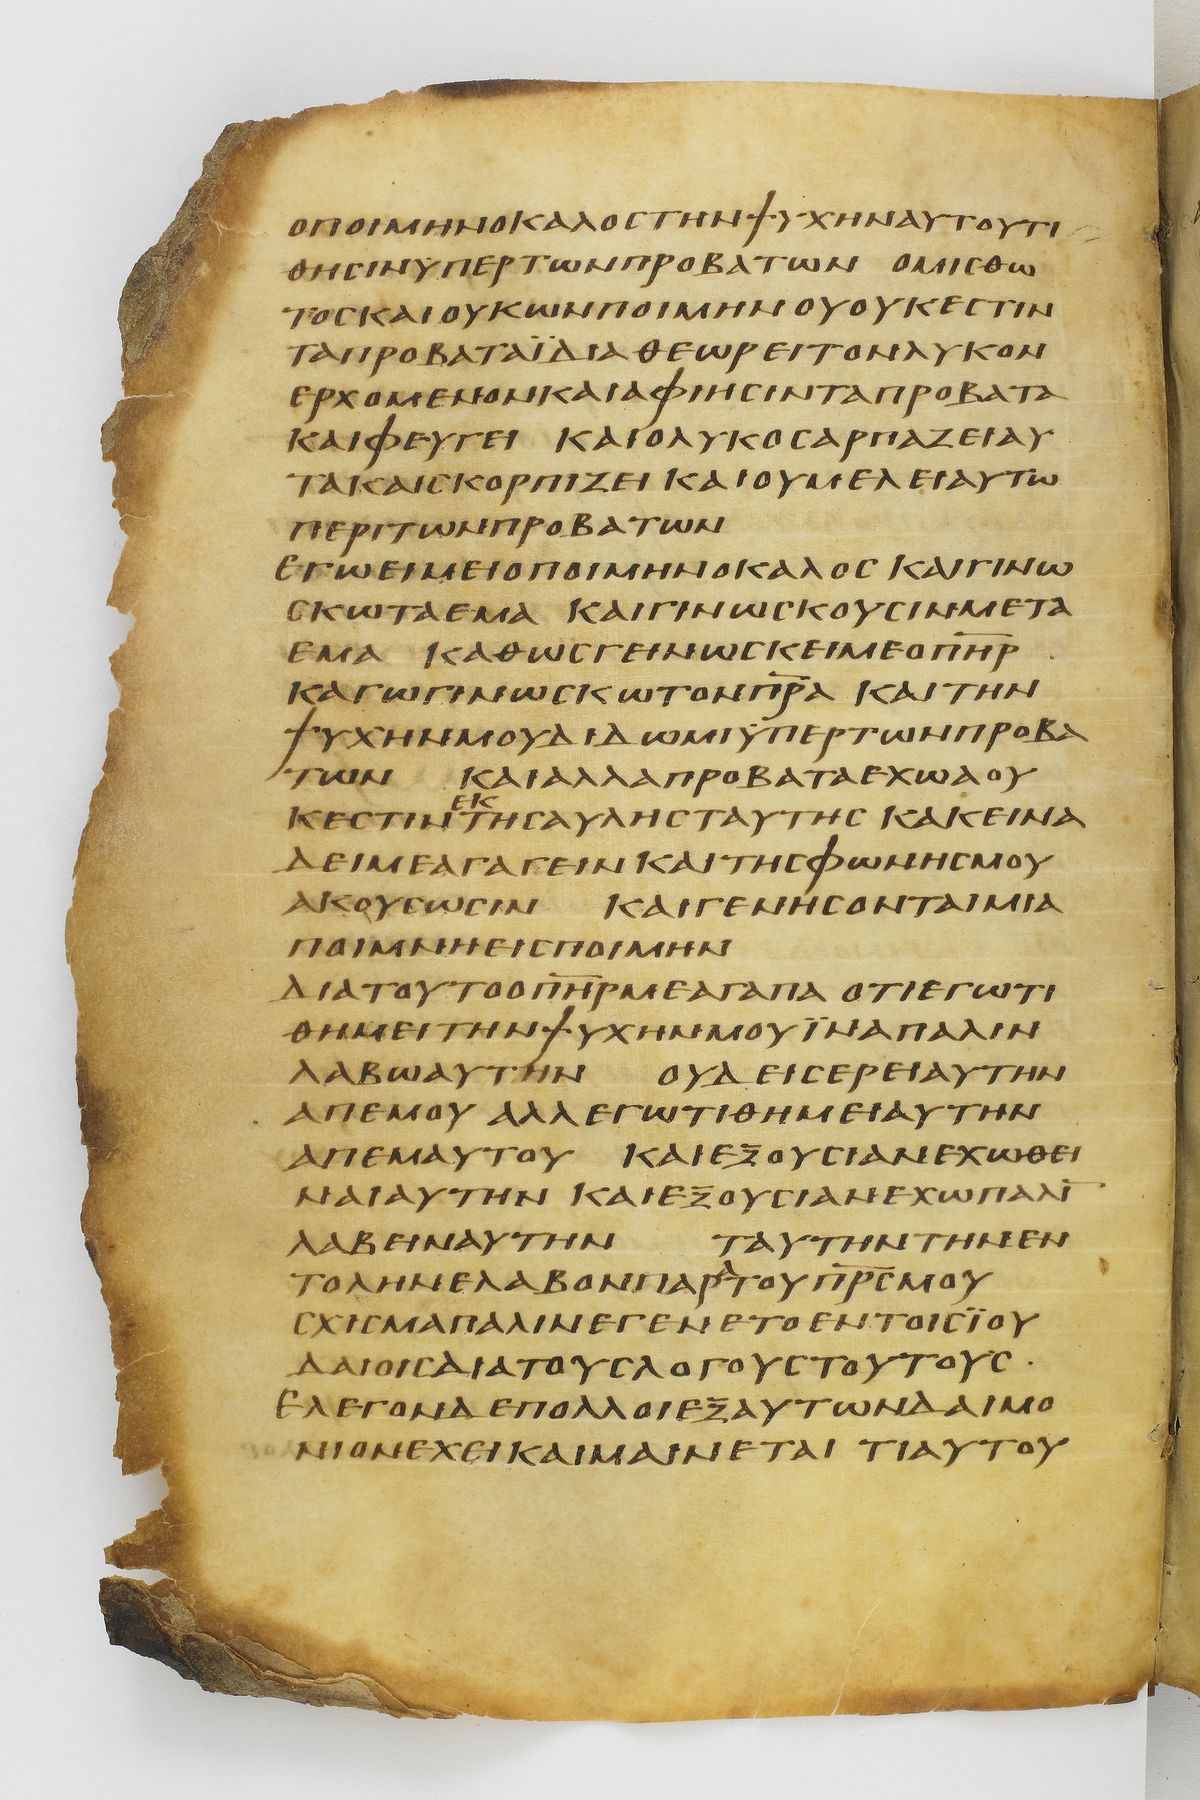 ΟΠΟΙΜΗΝΟΚΑΛΟΣΤΗΝΨΥΧΗΝΑΥΤΟΥΤΙ
ΘΗΣΙΝΫΠΕΡΤΩΝΠΡΟΒΑΤΩΝ ΟΜΙΣΘΩ
ΤΟΣΚΑΙΟΥΚΩΝΠΟΙΜΗΝΟΥΟΥΚΕΣΤΙΝ
ΤΑΠΡΟΒΑΤΑΪΔΙΑΘΕΩΡΕΙΤΟΝΛΥΚΟΝ
ΕΡΧΟΜΕΝΟΝΚΑΙΑΦΙΗΣΙΝΤΑΠΡΟΒΑΤΑ
ΚΑΙΦΕΥΓΕΙ ΚΑΙΟΛΥΚΟΣΑΡΠΑΖΕΙΑΥ
ΤΑΚΑΙΣΚΟΡΠΙΖΕΙΚΑΙΟΥΜΕΛΕΙΑΥΤΩ
ΠΕΡΙΤΩΝΠΡΟΒΑΤΩΝ
ΕΓΩΕΙΜΕΙΟΠΟΙΜΗΝΟΚΑΛΟΣ ΚΑΙΓΙΝΩ
ΣΚΩΤΑΕΜΑ ΚΑΙΓΙΝΩΣΚΟΥΣΙΝΜΕΤΑ
ΕΜΑ ΚΑΘΩΣΓΕΙΝΩΣΚΕΙΜΕΟΠ̅Η̅Ρ̅
ΚΑΓΩΓΙΝΩΣΚΩΤΟΝΠ̅Ρ̅Α̅ ΚΑΙΤΗΝ
ΨΥΧΗΝΜΟΥΔΙΔΩΜΙΫΠΕΡΤΩΝΠΡΟΒΑ
ΤΩΝ ΚΑΙΑΛΛΑΠΡΟΒΑΤΑΕΧΩΑΟΥ
ΚΕΣΤΙΝΕΚΤΗΣΑΥΛΗΣΤΑΥΤΗΣ ΚΑΚΕΙΝΑ
ΔΕΙΜΕΑΓΑΓΕΙΝΚΑΙΤΗΣΦΩΝΗΣΜΟΥ
ΑΚΟΥΣΩΣΙΝ ΚΑΙΓΕΝΗΣΟΝΤΑΙΜΙΑ
ΠΟΙΜΝΗΕΙΣΠΟΙΜΗΝ
ΔΙΑΤΟΥΤΟΟΠ̅Η̅Ρ̅ΜΕΑΓΑΠΑ ΟΤΙΕΓΩΤΙ
ΘΗΜΕΙΤΗΝΨΥΧΗΝΜΟΥΪΝΑΠΑΛΙΝ
ΛΑΒΩΑΥΤΗΝ ΟΥΔΕΙΣΕΡΕΙΑΥΤΗΝ
ΑΠΕΜΟΥ ΑΛΛΕΓΩΤΙΘΗΜΕΙΑΥΤΗΝ
ΑΠΕΜΑΥΤΟΥ ΚΑΙΕΞΟΥΣΙΑΝΕΧΩΘΕΙ
ΝΑΙΑΥΤΗΝ ΚΑΙΕΞΟΥΣΙΑΝΕΧΩΠΑΛΙ̅
ΛΑΒΕΙΝΑΥΤΗΝ ΤΑΥΤΗΝΤΗΝΕΝ
ΤΟΛΗΝΕΛΑΒΟΝΠΑΡΑΤΟΥΠ̅Ρ̅Σ̅ΜΟΥ
ΣΧΙΣΜΑΠΑΛΙΝΕΓΕΝΕΤΟΕΝΤΟΙΣΪΟΥ
ΔΑΙΟΙΣΔΙΑΤΟΥΣΛΟΓΟΥΣΤΟΥΤΟΥΣ·
ΕΛΕΓΟΝΔΕΠΟΛΛΟΙΕΞΑΥΤΩΝΔΑΙΜΟ
ΝΙΟΝΕΧΕΙΚΑΙΜΑΙΝΕΤΑΙ ΤΙΑΥΤΟΥ